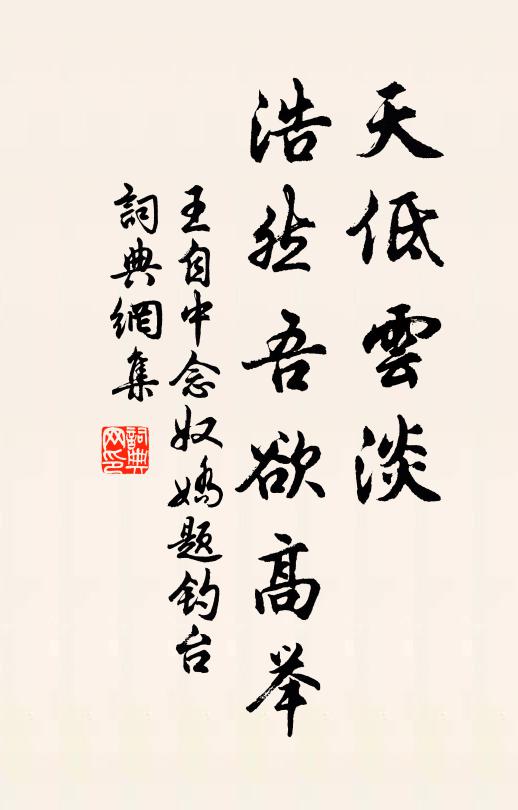 天低雲淡
浩然吾欲高举
王自中念奴嬌題钓台
詞典網集
詞典网印